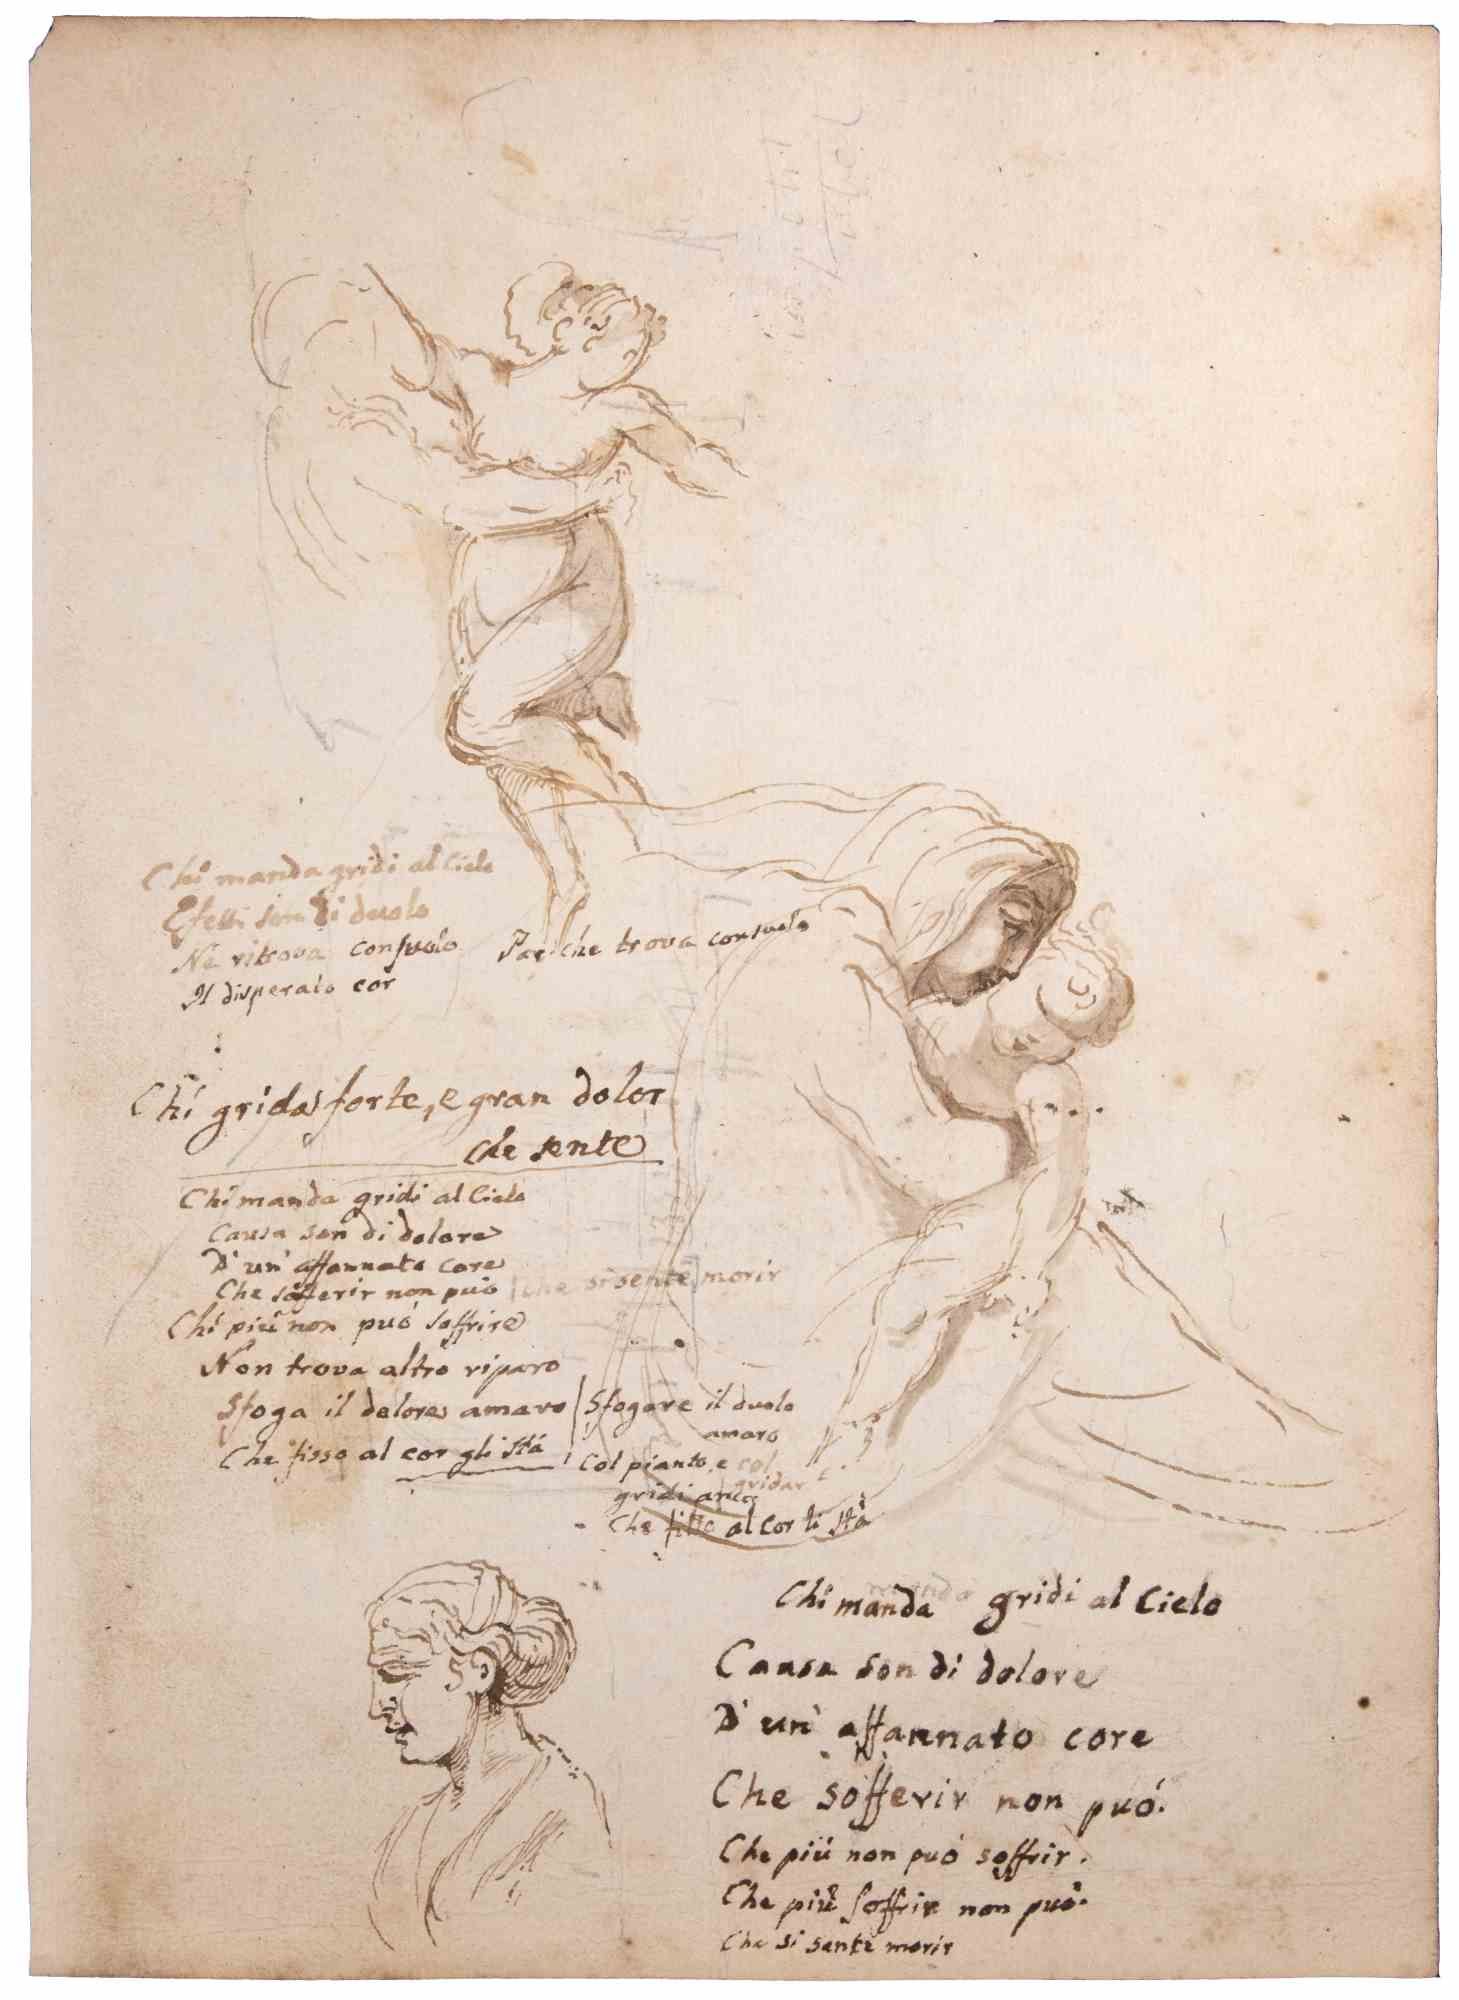 Chi manda gridi al Cielo
Efetti son di duolo
Ne ritrova consuolo
Perche trova consuolo
Il disperato cor
Chi grida forte, e gran dolor
che sente
Chi manda gridi al Cielo
Causa son di dolore
D'un' affannato core
Che sofferir non puó | che si sente morir
Chi piú non puó soffrire
Non trova altro riparo
Sfoga il dolore amaro
Che fisso al cor gli stá
Sfogare il duolo
amaro
Col pianto, e col
gridar
gridi anco
Che fitto al cor li stá
Chi manda gridi al Cielo
Causa son di dolore
D' un' affannato core
Che sofferir non puó.
Che piú non puó soffrir.
Che piú soffrir non puó.
Che si sente morir